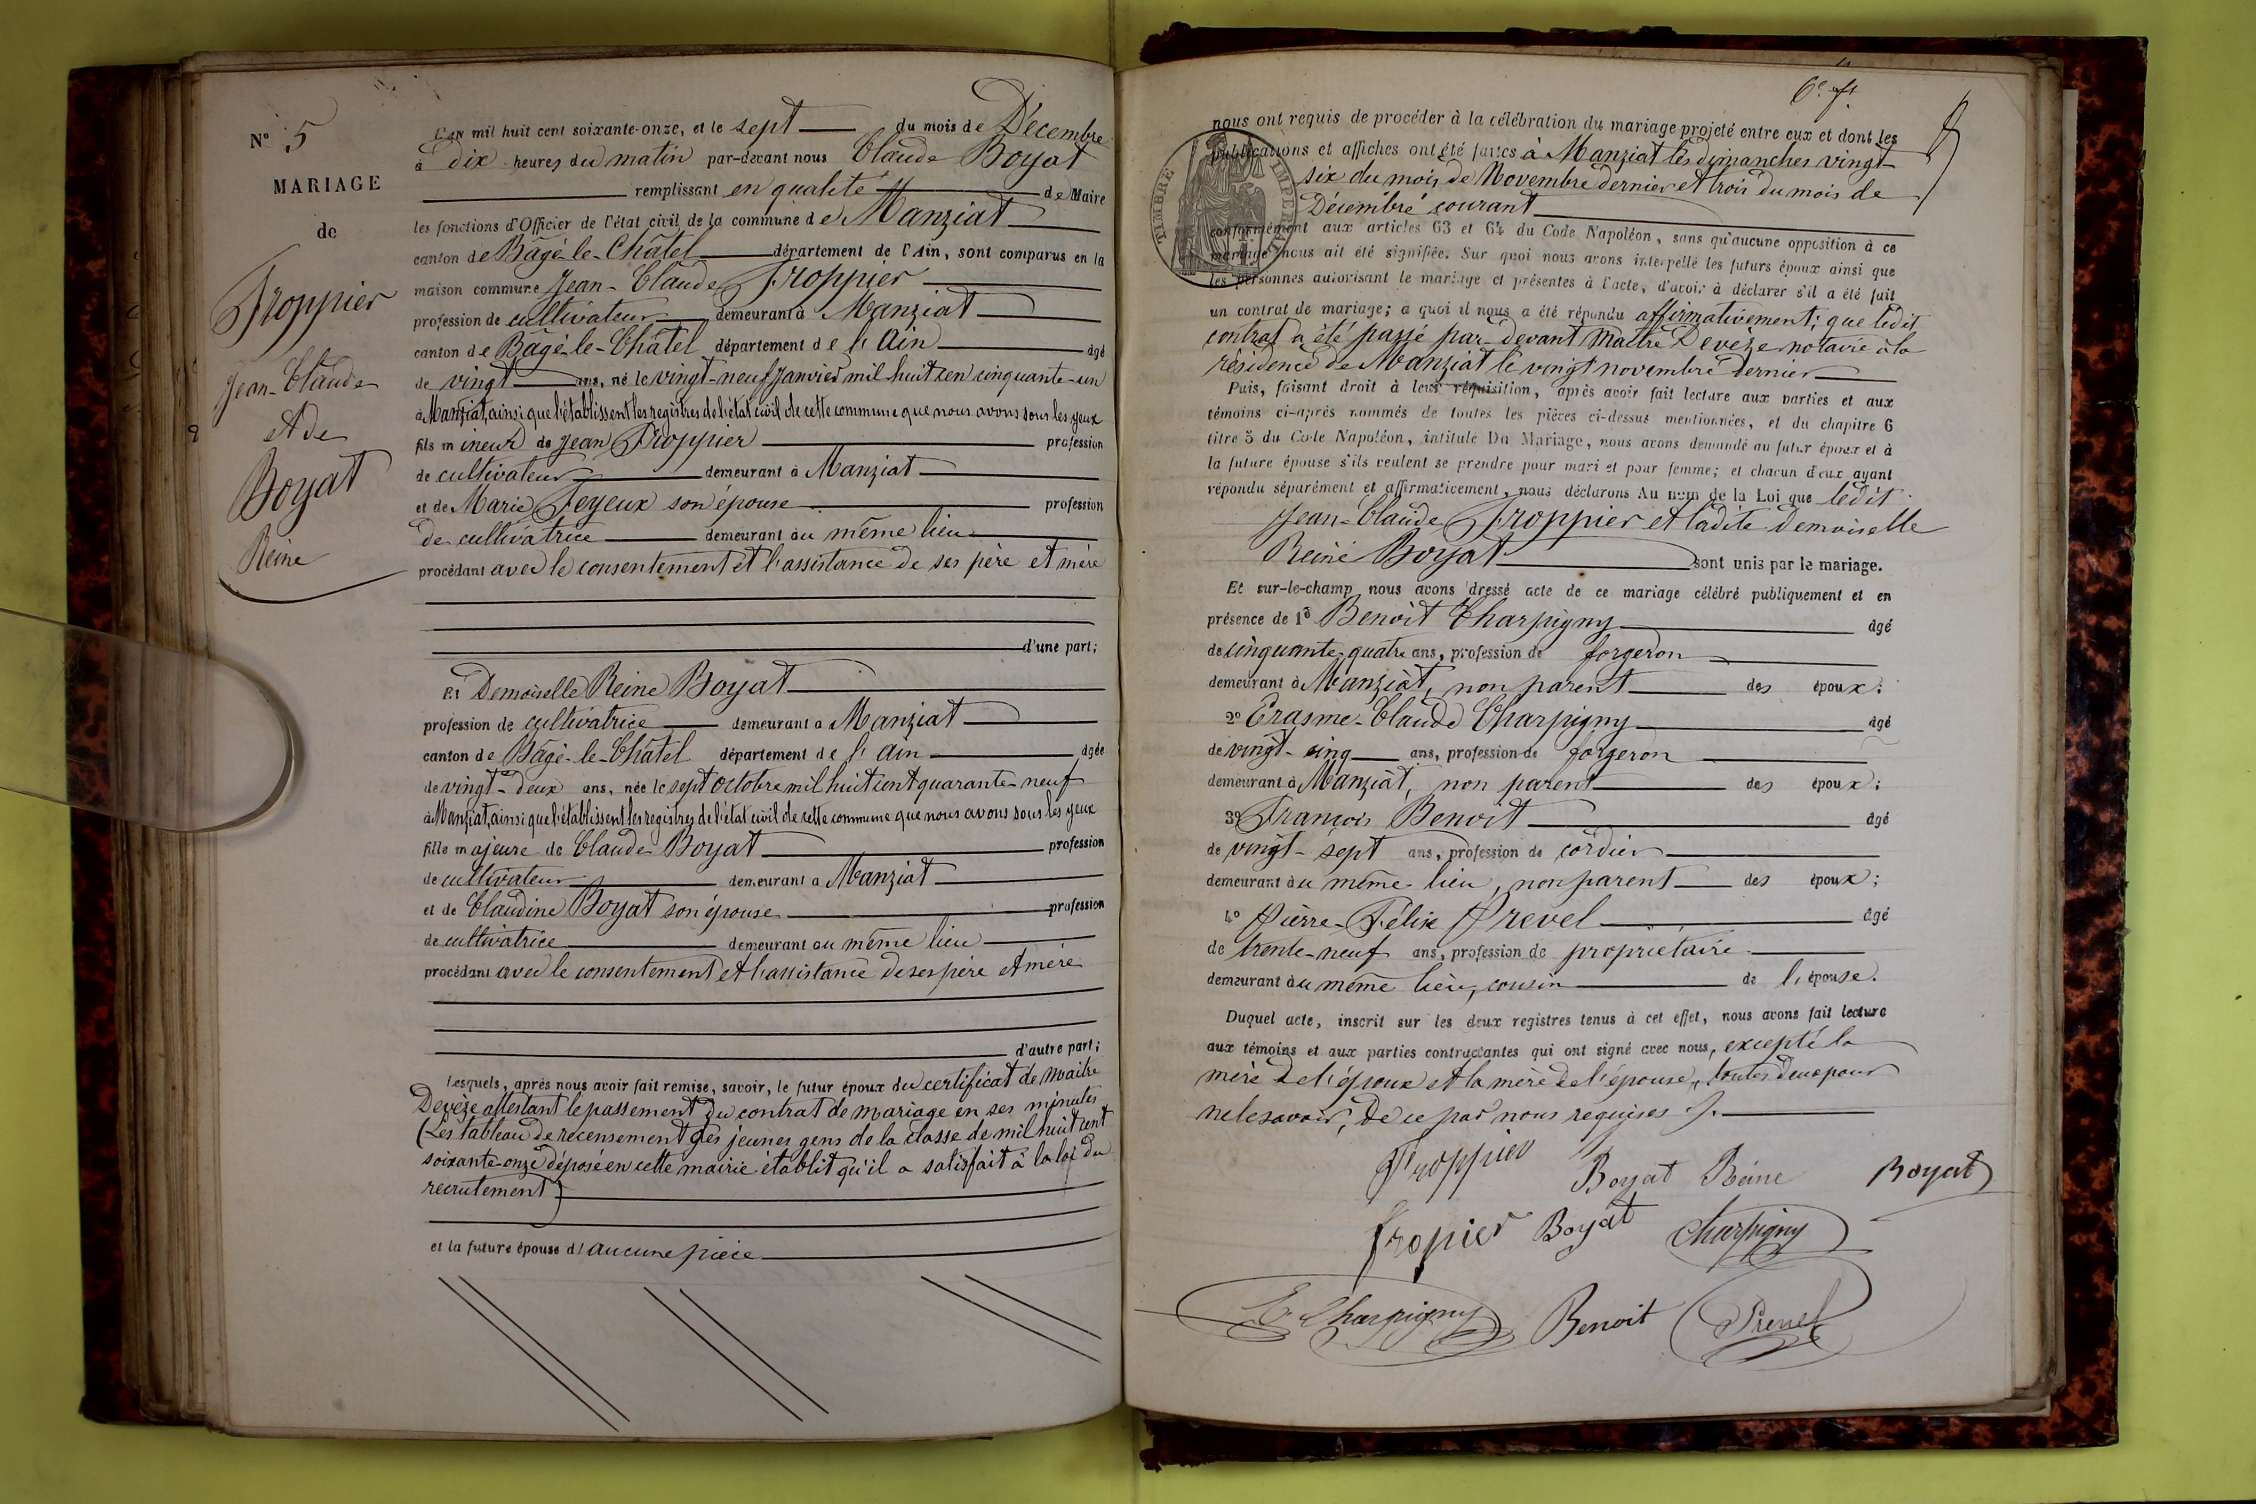 N° 5
MARIAGE
de
Froppier
Jean-Claude
et de
Boyat
Reine
L'an mil huit cent soixante-onze, et le sept du mois de Décembre
à dix heures du matin par-devant nous Claude Boyat
remplissant en qualité de Maire
les fonctions d'Officier de l'état civil de la commune de Manziat
canton de Bâgé-le-Châtel département de l'Ain, sont comparus en la
maison commune Jean-Claude Froppier
profession de cultivateur demeurant à Manziat
canton de Bâgé-le-Châtel département de l'Ain âgé
de vingt ans, né le vingt-neuf janvier mil huit cen cinquante-un
à Manziat, ainsi que l'établissent les registres de l'état civil de cette commune que nous avons sous les yeux
fils mineur de Jean Froppier profession
de cultivateur demeurant à Manziat
et de Marie Feyeux son épouse profession
de cultivatrice demeurant au même lieu
procédant avec le consentement et l'assistance de ses père et mère
d'une part;
Et Demoiselle Reine Boyat
profession de cultivatrice demeurant à Manziat
canton de Bâgé-le-Châtel département de l'Ain âgée
de vingt-deux ans, née le sept octobre mil huit cent quarante-neuf
à Manziat, ainsi que l'établissent les registres de l'état civil de cette commune que nous avons sous les yeux
fille majeure de Claude Boyat profession
de cultivateur demeurant à Manziat
et de Claudine Boyat son épouse profession
de cultivatrice demeurant au même lieu
procédant avec le consentement et l'assistance de ses père et mère
d'autre part;
Lesquels, après nous avoir fait remise, savoir, le futur époux du certificat de Maître
Devèze attestant le passement du contrat de mariage en ses minutes
(Les tableau de recensement des jeunes gens de la classe de mil huit cent
soixante-onze déposé en cette mairie établit qu'il a satisfait à la loi du
recrutement)
et la future épouse d'aucune pièce
6e ft
nous ont requis de procéder à la célébration du mariage projeté entre eux et dont les
publications et affiches ont été faites à Manziat les dimanches vingt
six du mois de Novembre dernier et trois du mois de
Décembre courant
TIMBRE IMPERIAL
conformément aux articles 63 et 64 du Code Napoléon, sans qu'aucune opposition à ce
mariage nous ait été signifiée. Sur quoi nous avons interpellé les futurs époux ainsi que
les personnes autorisant le mariage et présentes à l'acte, d'avoir à déclarer s'il a été fait
un contrat de mariage; à quoi il nous a été répondu affirmativement; que ledit
contrat a été passé par-devant Maître Devèze notaire à la
résidence de Manziat le vingt novembre dernier
Puis, faisant droit à leur réquisition, après avoir fait lecture aux parties et aux
témoins ci-après nommés de toutes les pièces ci-dessus mentionnées, et du chapitre 6
titre 5 du Code Napoléon, intitulé Du Mariage, nous avons demandé au futur époux et à
la future épouse s'ils veulent se prendre pour mari et pour femme; et chacun d'eux ayant
répondu séparément et affirmativement, nous déclarons Au nom de la Loi que ledit
Jean-Claude Froppier et ladite demoiselle
Reine Boyat sont unis par le mariage.
Et sur-le-champ nous avons dressé acte de ce mariage célébré publiquement et en
présence de 1° Benoît Charpigny âgé
de cinquante-quatre ans, profession de forgeron
demeurant à Manziat, non parent des époux;
2° Erasme-Claude Charpigny âgé
de vingt-cinq ans, profession de forgeron
demeurant à Manziat, non parent des époux;
3° François Benoît âgé
de vingt-sept ans, profession de cordier
demeurant au même lieu, non parent des époux;
4° Pierre-Félix Prevel âgé
de trente-neuf ans, profession de propriétaire
demeurant au même lieu, cousin de l'épouse.
Duquel acte, inscrit sur les deux registres tenus à cet effet, nous avons fait lecture
aux témoins et aux parties contractantes qui ont signé avec nous, excepté la
mère de l'époux et la mère de l'épouse, toutes deux pour
ne le savoir, de ce par nous requises ./.
Froppier Boyat Reine Boyat
fropier Boyat Charpigny
E. Charpigny Benoit Prevel